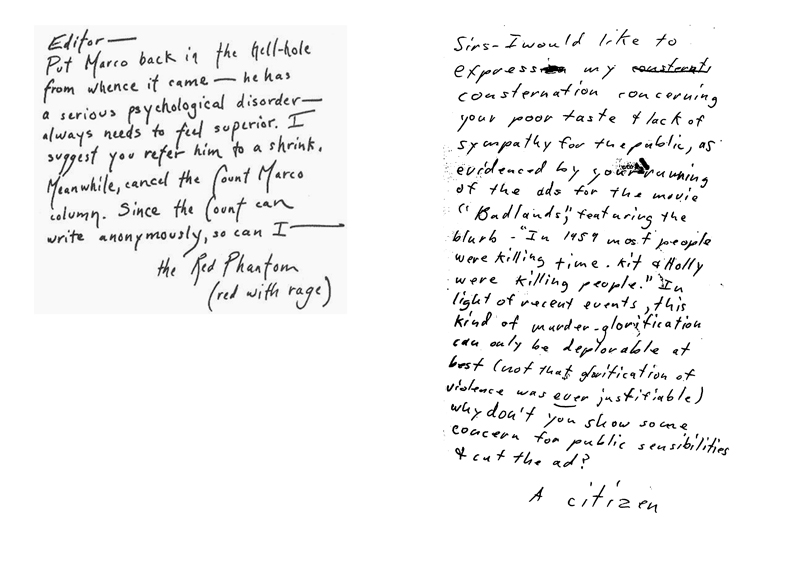 Editor—
Put Marco back in the Hell-hole
from whence it came — he has
a serious psychological disorder—
always needs to feel superior. I
suggest you refer him to a shrink.
Meanwhile, cancel the Count Marco
column. Since the Count can
write anonymously, so can I—
the Red Phantom
(red with rage)
Sirs - I would like to
express my consternat
consternation concerning
your poor taste & lack of
sympathy for the public, as
evidenced by your running
of the ads for the movie
"Badlands," featuring the
blurb - "In 1959 most people
were killing time. Kit & Holly
were killing people." In
light of recent events, this
kind of murder-glorification
can only be deplorable at
best (not that glorification of
violence was ever justifiable)
why don't you show some
concern for public sensibilities
& cut the ad?
A citizen